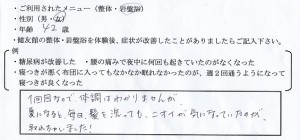 ・ご利用されたメニュー(整体・岩盤浴)
・性別(男・女)
・年齢 42 歳
・健友館の整体・岩盤浴を体験後、症状が改善したことがありましたらご記入下さい。
例
糖尿病が改善した ・腰の痛みで夜中に何回も起きていたのがなくなった
・寝つきが悪く布団に入ってもなかなか眠れなかったのが、週2回通うようになって
寝つきが良くなった
1回目なので、体調はわかりませんが
夏になると、毎日、髪を洗っても、ニオイが気になっていたのが、